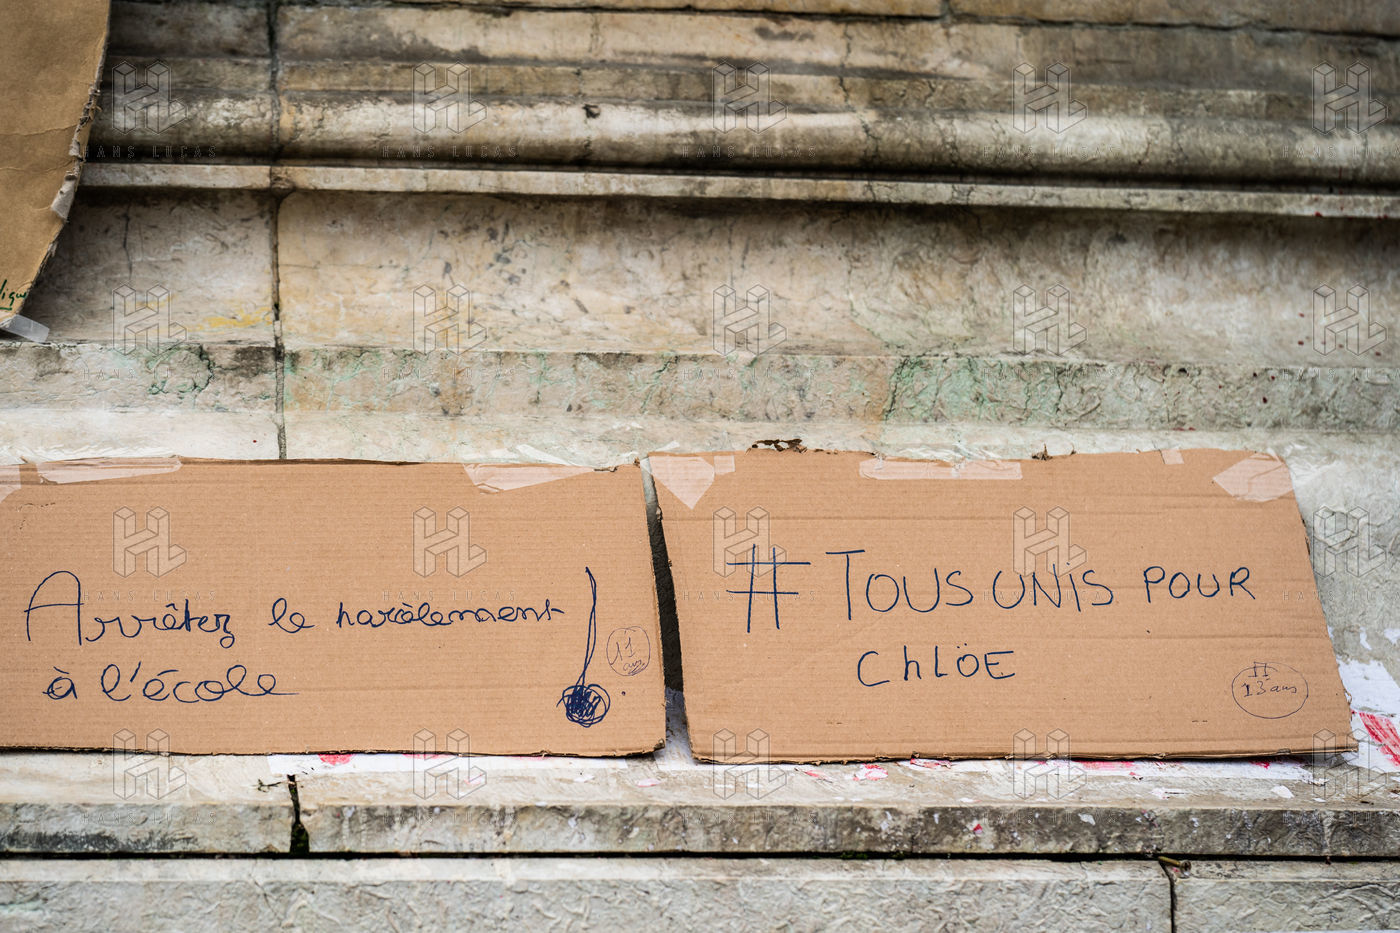 Arrêtez le harcèlement !
à l'école
11
ans
# TOUS UNIS POUR
CHLÖE
13 ans
HANS LUCAS